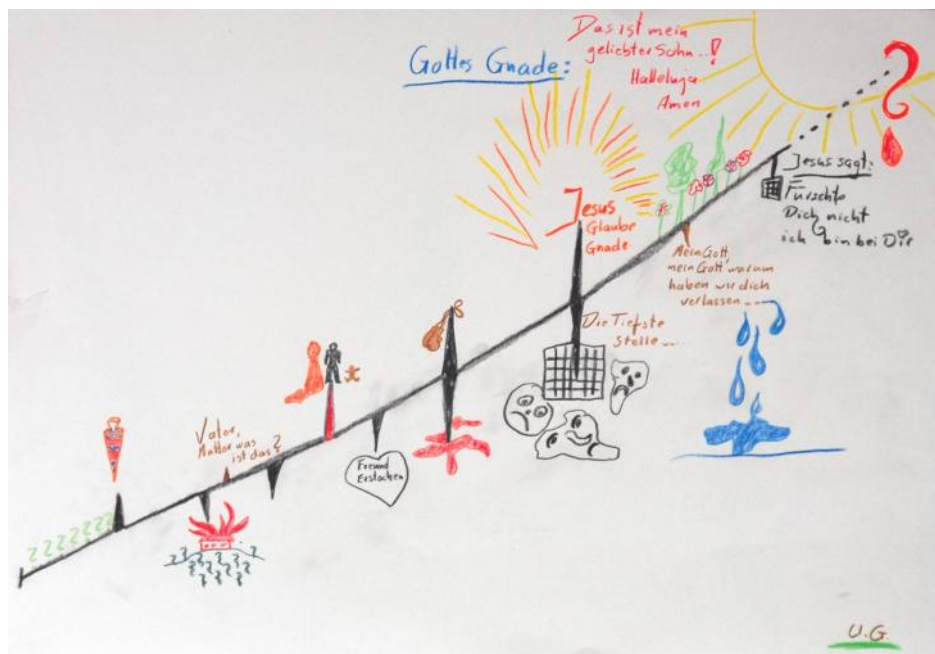 Gottes Gnade:
Das ist mein
geliebter Sohn...!
Halleluja
Amen
Jesus
Glaube
Gnade
Jesus sagt:
Fürchte
Dich nicht
ich bin bei Dir
Mein Gott,
mein Gott warum
haben wir dich
verlassen...
Die Tiefste
Stelle...
Vater,
Mutter was
ist das?
Freund
Erstochen
U.G.